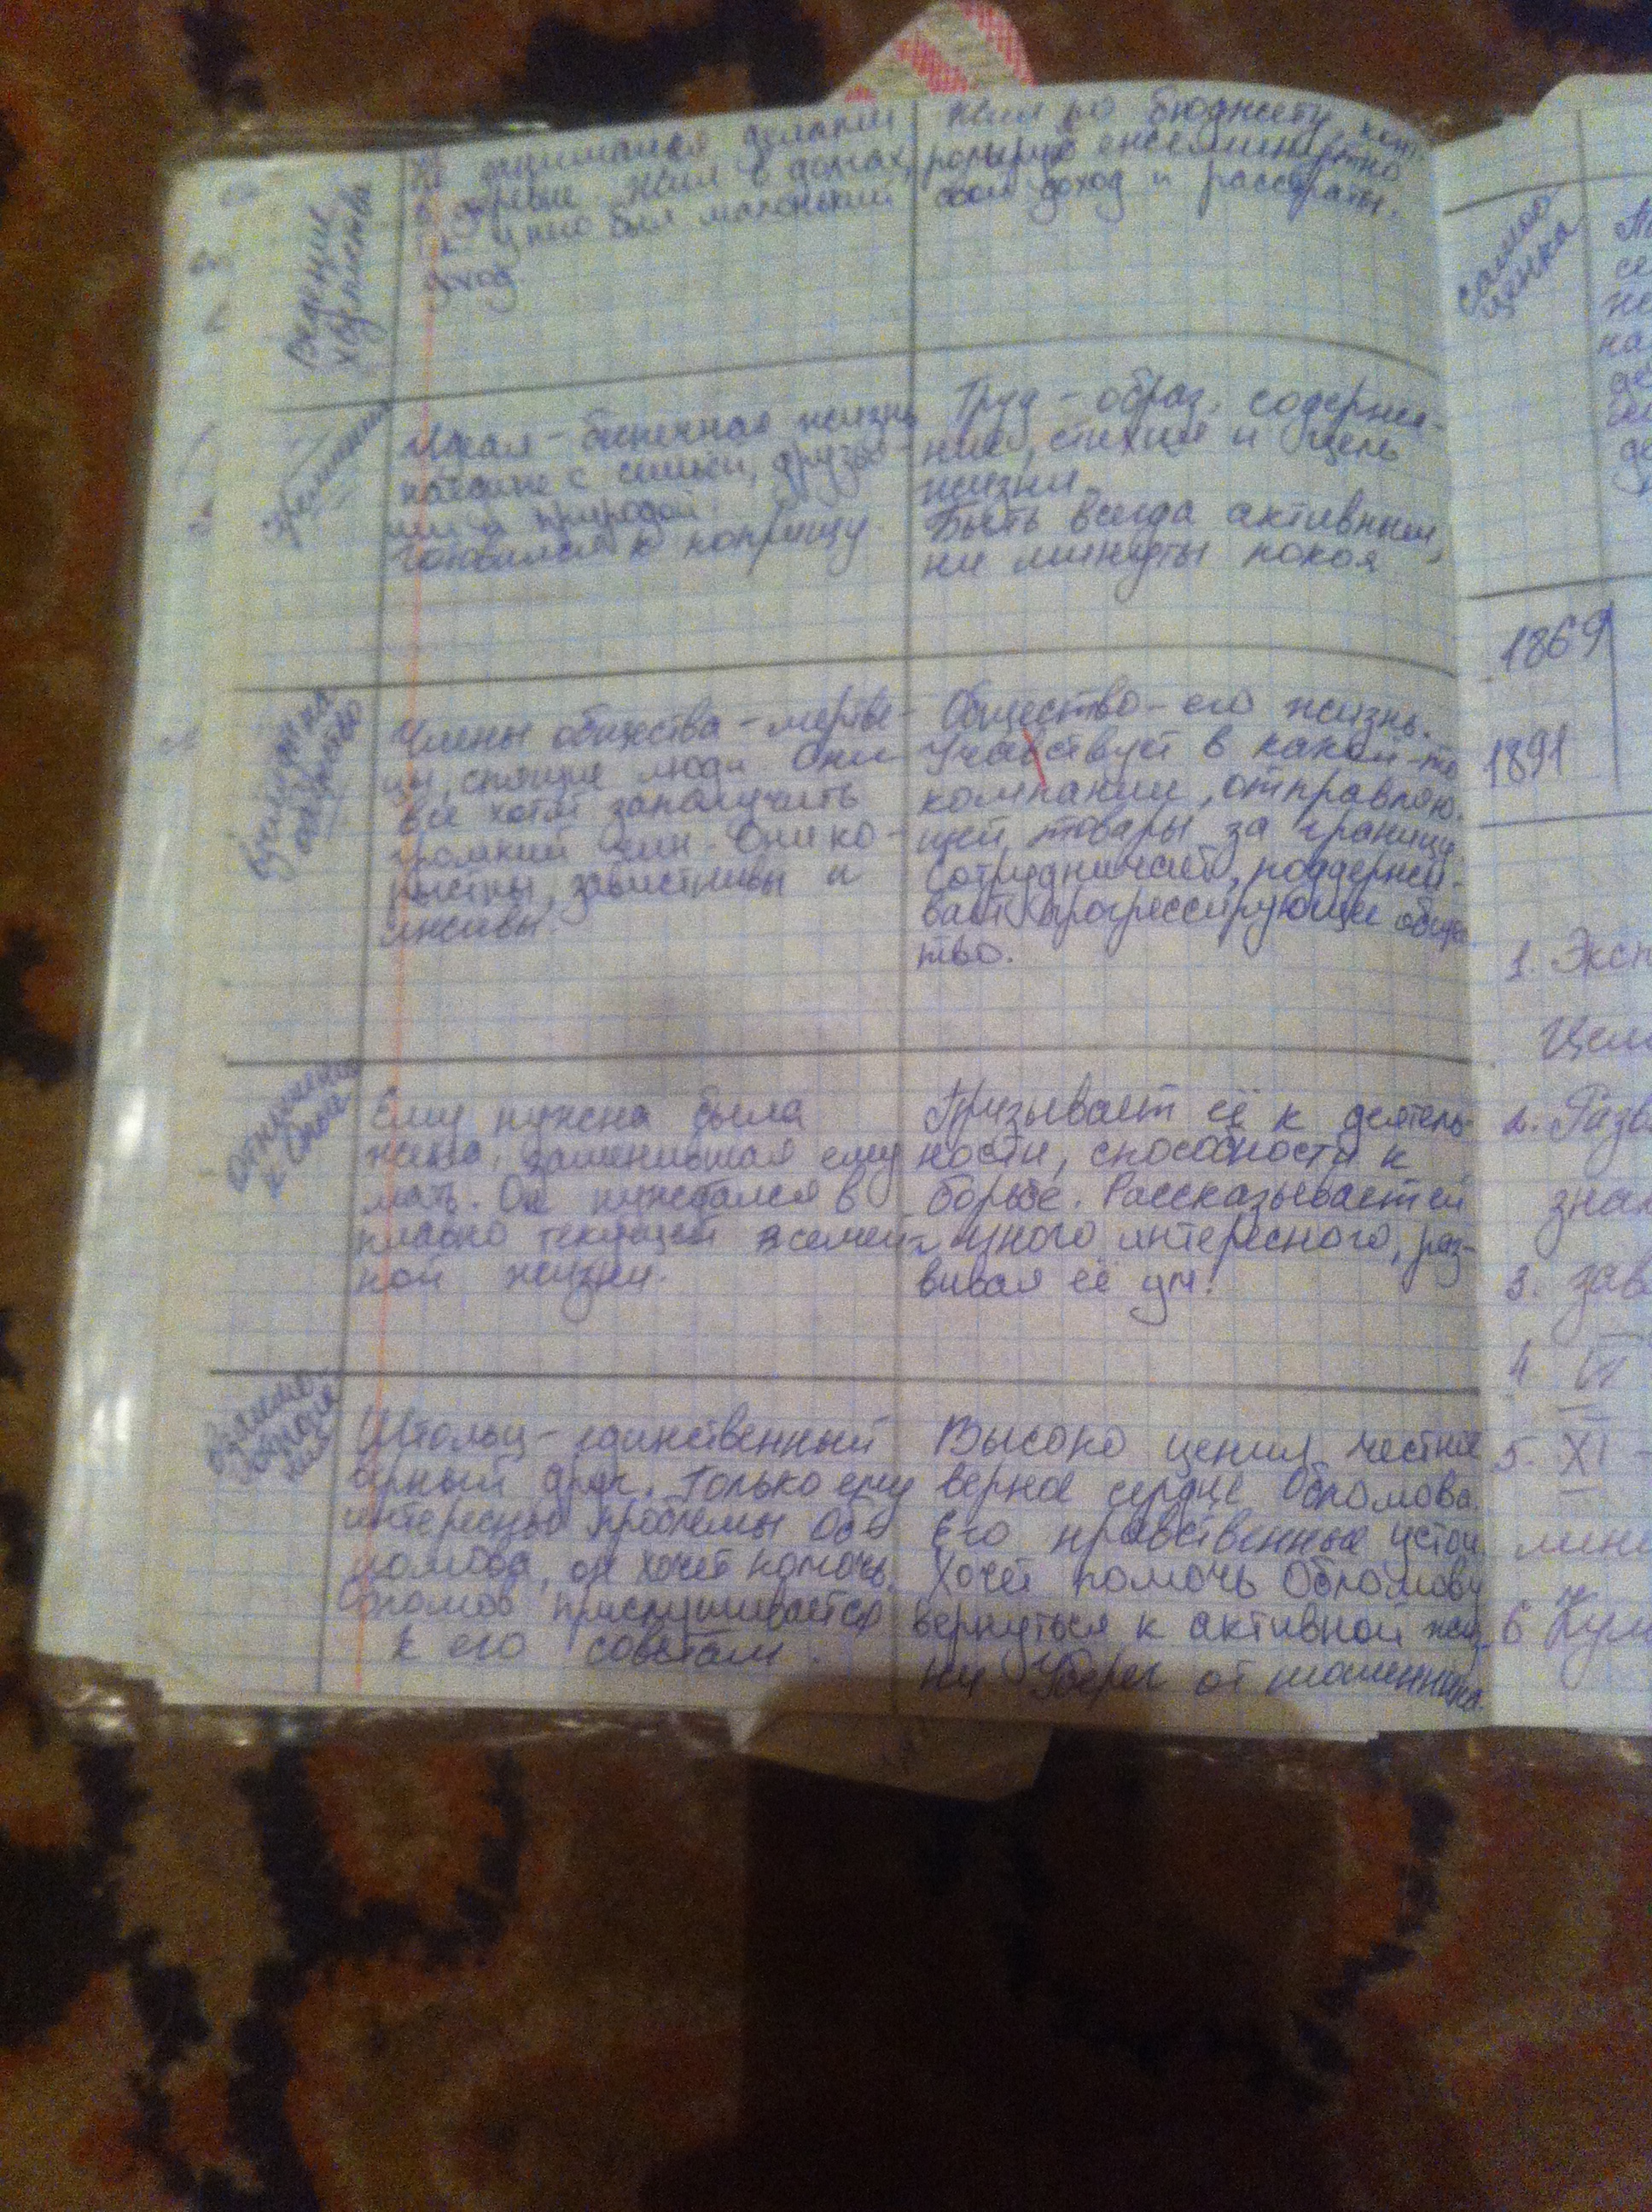 Ведение
хозяйства
Не занимался делами
в деревне. Жил в долгах,
т.к. у него был маленький
доход.
Жил по бюджету, конт-
ролируя
свой доход и рассраты.
Стремления
Идеал – беспечная жизнь
с семьёй, друзья-
ми и природой.
Готовился к поприщу.
Труд – образ, содержа-
ние, стихия и цель
жизни.
Быть всегда активным,
ни минуты покоя
Взгляды на
общество
Члены общества – мертве-
цы, спящие люди. Они
все хотят заполучить
громкий чин. Они ко-
рыстны, завистливы и
лживы.
Общество – его жизнь.
Учавствует в какой-то
компании, отправляю-
щей товары за границу.
Сотрудничает, поддержи-
вает прогрессирующее общес
тво.
Отношения
к Ольге
Ему нужна была
жена, заменившая ему
мать. Он нуждался в
плавно текущей семей-
ной жизни.
Призывает её к деятель-
ности, способности к
борьбе. Рассказывает ей
много интересного, раз-
вивая её ум.
Взаимо-
Штольц – единственный
верный друг. Только ему
интересны проблемы Об-
ломова, он хочет помочь.
Обломов прислушивается
к его советам.
Высоко ценил честное
верное сердце Обломова.
Его нравственные устои.
Хочет помочь Обломову
вернуться к активной жиз-
ни Уберег от мошенника.
Самоо
ценка
1869
1891
1. Эксп
Цели
2. Разв
знак
3. зав
4. VI
5. XI
6 Кул